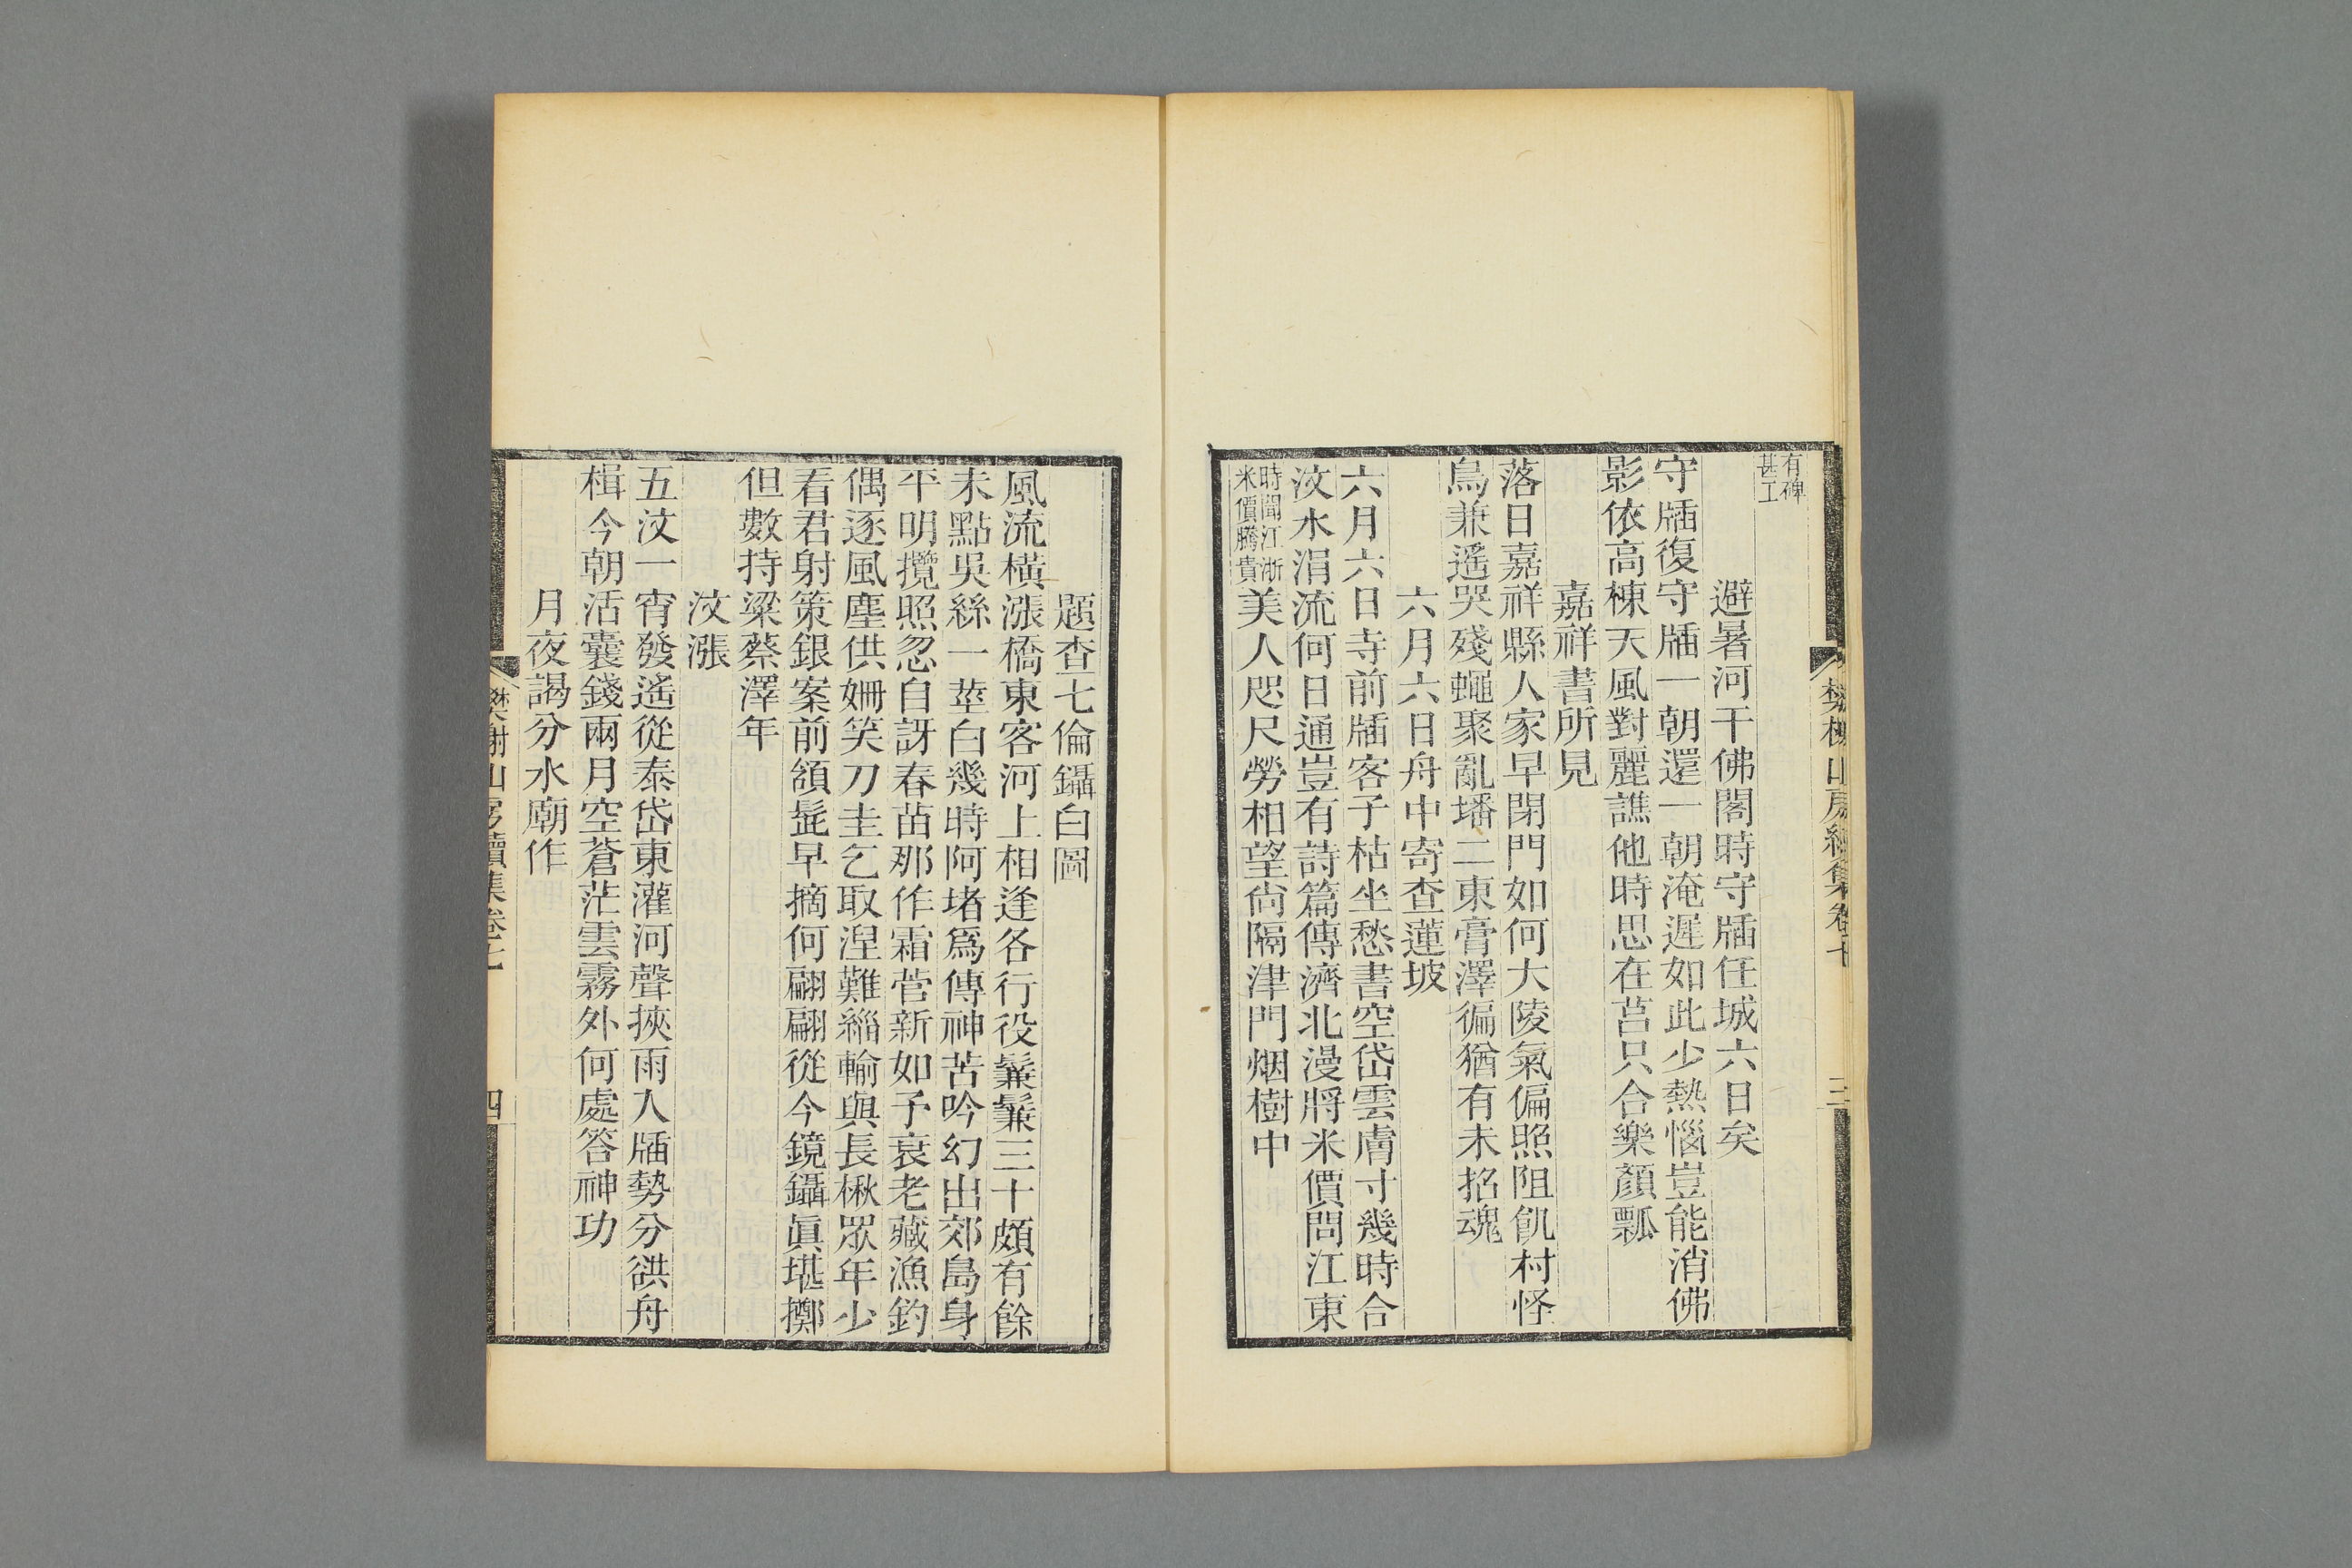 有碑
甚工
避暑河干佛閣時守牐任城六日矣
守牐復守牐一朝還一朝淹遲如此少熱惱豈能消佛
影依高棟天風對麗譙他時思在莒只合樂顏瓢
嘉祥書所見
落日嘉祥縣人家早閉門如何大陵氣偏照阻飢村怪
鳥兼遙哭殘蠅聚亂墦二東膏澤徧猶有未招魂
六月六日舟中寄查蓮坡
六月六日寺前牐客子枯坐愁書空岱雲膚寸幾時合
汶水涓流何日通豈有詩篇傳濟北漫將米價問江東
時聞江浙
米價騰貴
美人咫尺勞相望尙隔津門烟樹中
題查七倫鑷白圖
風流橫漲橋東客河上相逢各行役鬑鬑三十頗有餘
未點吳絲一莖白幾時阿堵爲傳神苦吟幻出郊島身
平明攬照忽自訝春苗那作霜菅新如予衰老藏漁釣
偶逐風塵供姍笑刀圭乞取涅難緇輸與長楸眾年少
看君射策銀案前頷髭早摘何翩翩從今鏡鑷眞堪擲
但數持粱蔡澤年
汶漲
五汶一宵發遙從泰岱東灌河聲挾雨入牐勢分谼舟
楫今朝活囊錢兩月空蒼茫雲霧外何處答神功
月夜謁分水廟作